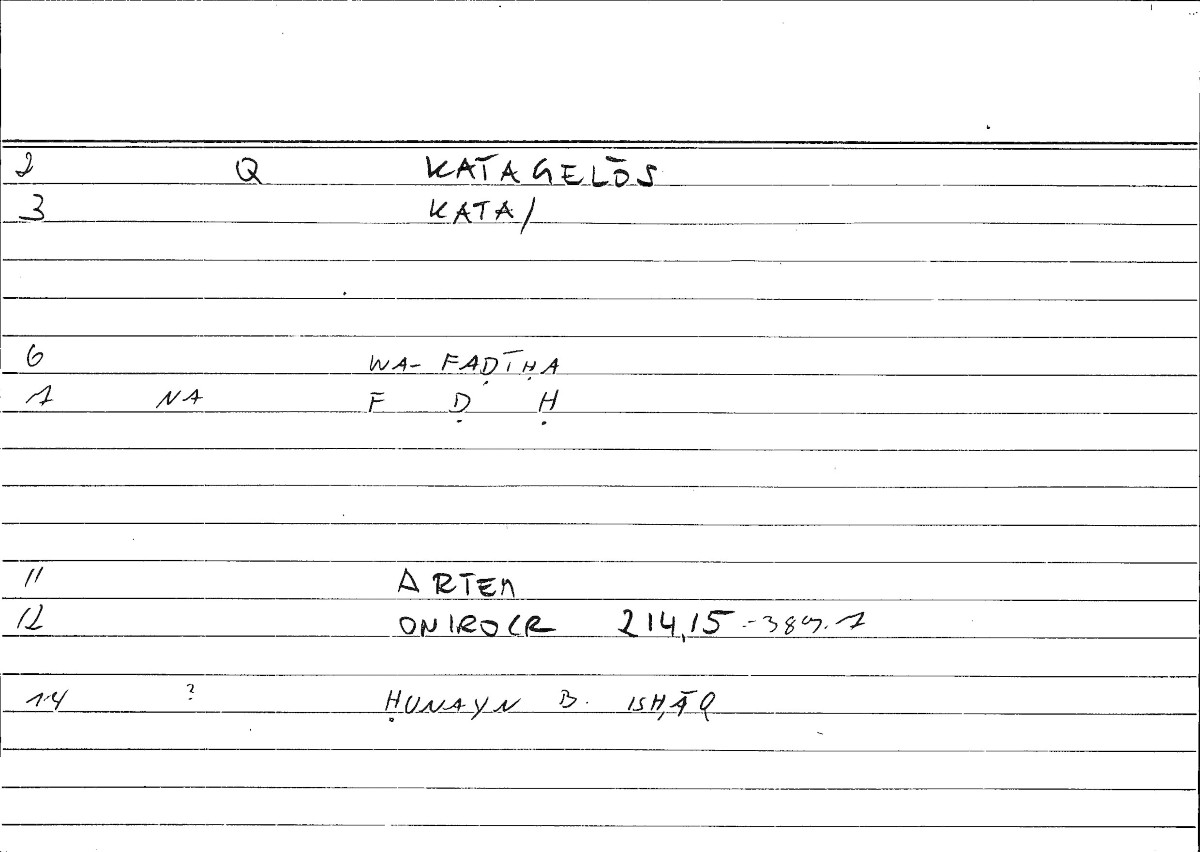 2 Q KATAGELŌS
3 KATA/
6 WA- FAḌĪḤA
7 NA F Ḍ Ḥ
11 ARTEM
12 ONIROCR 214,15 - 389.7
14 ? ḤUNAYN B. ISḤĀQ